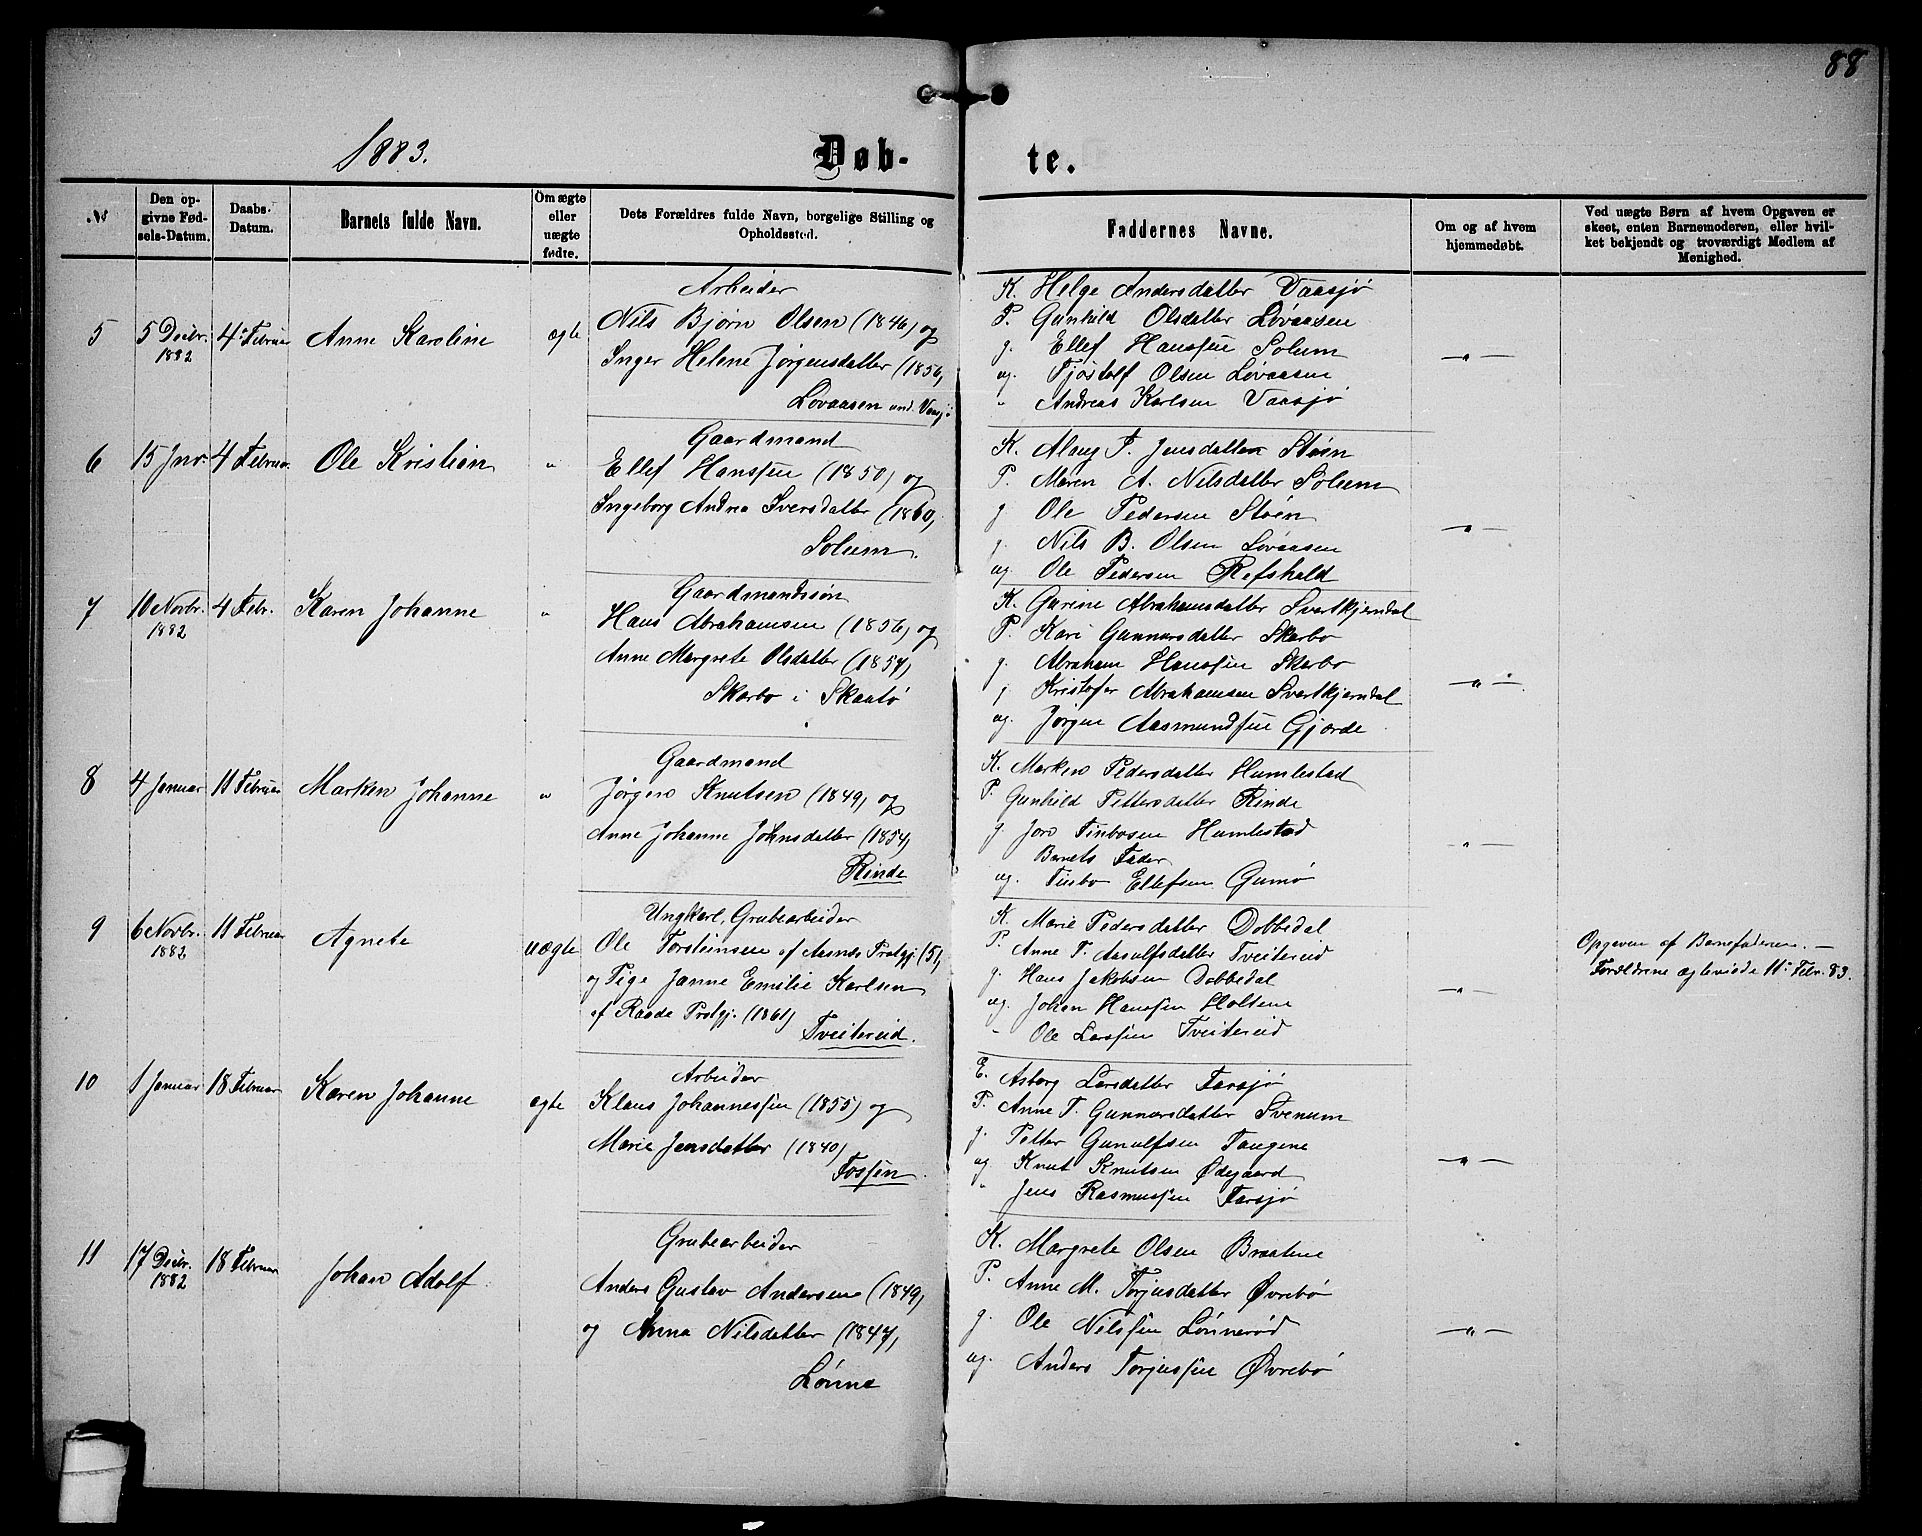 88
1883.
Døb- te.
№
Den op-
givne Fød-
sels-Datum.
Daabs-
Datum.
Barnets fulde Navn.
Om ægte
eller
uægte
fødte.
Dets Forældres fulde Navn, borgelige Stilling og
Opholdssted.
Faddernes Navne.
Om og af hvem
hjemmedøbt.
Ved uægte Børn af hvem Opgaven er
skeet, enten Barnemoderen, eller hvil-
ket bekjendt og troværdigt Medlem af
Menighed.
5
5 Decbr.
1882
4' Februar
Anne Karoline
ægte
Arbeider
Nils Bjørn Olsen (1846) og
Inger Helene Jørgensdatter (1856,
Lovaasen und. Vaasjø
K. Helge Andersdatter Vaasjø
P. Gunhild Olsdatter Lovaasen
g. Ellef Hanssen Solum
og. Tjøstolf Olsen Lovaasen
" Andreas Karlsen Vaasjø
—"—
6
15 Jnr.
4 Februar
Ole Kristian
"
Gaardmand
Ellef Hanssen (1850) og
Ingeborg Andrea Iversdatter (1860,
Solum.
K. Alaug P. Jensdatter Støen
P. Maren A. Nilsdatter Solum
g Ole Pedersen Støen
g. Nils B. Olsen Lovaasen
og Ole Pedersen Refshald
—"—
7
10 Novbr.
1882
4 Febr.
Karen Johanne
"
Gaardmandssøn
Hans Abrahamsen (1856) og
Anne Margrete Olsdatter (1857,
Skarbo i Skaatø
K. Gurine Abrahamsdatter Svartkjerndal
P. Kari Gunnarsdatter Skarbo
g. Abraham Hanssen Skarbo
g Kristofer Abrahamsen Svartkjerndal
og. Jørgen Aasmundssen Gjerde
—"—
8
4 Januar
11 Februar
Marken Johanne
"
Gaardmand
Jørgen Knutsen (1849) og
Anne Johanne Johnsdatter (1854,
Rinde
K. Marken Pedersdatter Humlestad
P. Gunhild Pettersdatter Rinde
g. Jørn Tinbosen Humlestad
Barnets Fader
og. Tinbo Ellefsen Gumø
—"—
9
6 Novbr.
1882
11 Februar
Agnete
uægte
Ungkarl, Grubearbeider
Ole Torsteinsen af Aasnes Prstgj. (51,
og Pige Janne Emilie Karlsen
af Raade Prstgj. (1861)
Tveitereid.
K. Marie Pedersdatter Dobbedal
P. Anne T. Aasulfsdatter Tveitereid
g. Hans Jakobsen Dobbedal
og. Johan Hanssen Holtene
" Ole Larssen Tveitereid
—"—
Opgaven af Barnefaderen. —
Forældrene ægteviede 11' Febr. 83.
10
1 Januar
18 Februar
Karen Johanne
ægte
Arbeider
Klaus Johannessen (1855) og
Marie Jensdatter (1840)
Fossen.
E. Asborg Larsdatter Farsjø
P. Anne T. Gunnarsdatter Svenum
g. Petter Gunulfsen Tangene
og Knut Knutsen Ødegaard
" Jens Rasmussen Farsjø
—"—
11
17 Decbr.
1882
18 Februar
Johan Adolf
Grubearbeider
Anders Gustav Andersen (1849,
og Anna Nilsdatter (1847,
Lønne
K. Margrete Olsen Braatene
P. Anne M. Torjusdatter Øvrebø
g. Ole Nilssen Lønnerød
og. Anders Torjussen Øvrebø
—"—